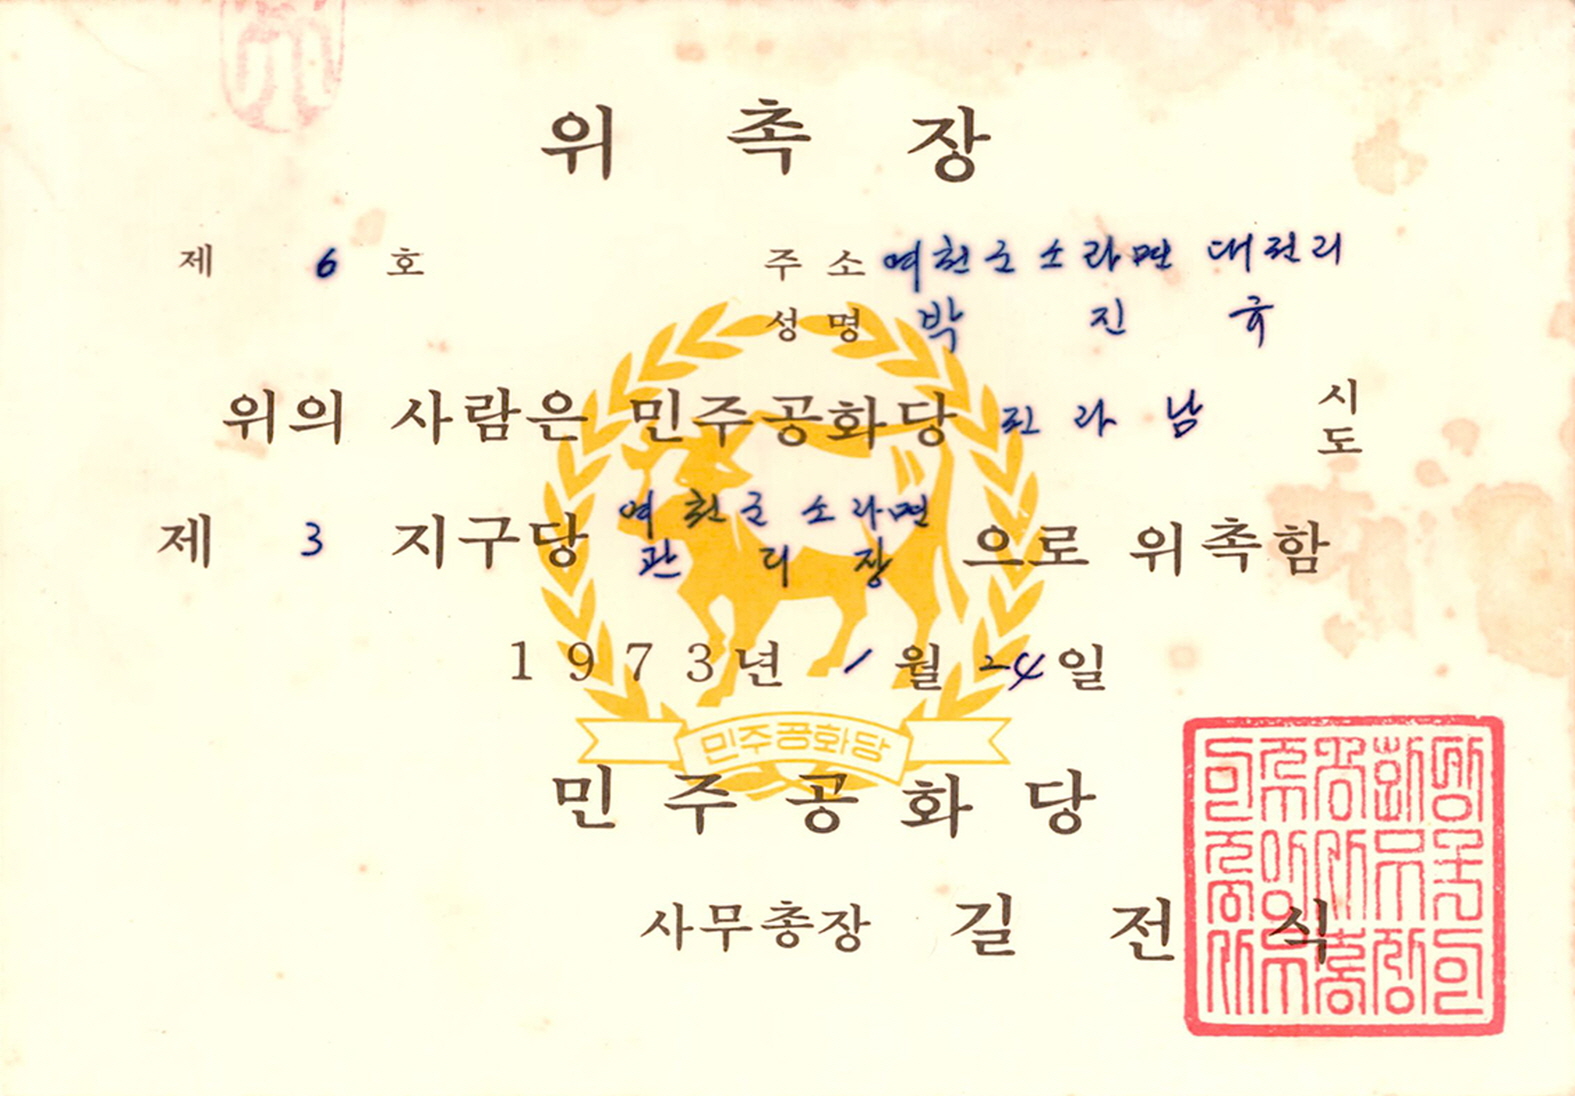 위 촉 장
제 6 호
주 소 여천군 소라면 대천리
성 명 박 진
위의 사람은 민주공화당 전 라 남 시 도
제 3 지구당 여천군 소라면 관 리 장 으로 위촉함
1973년 1월 24일
민주공화당
민 주 공 화 당
사무총장 길 전 식